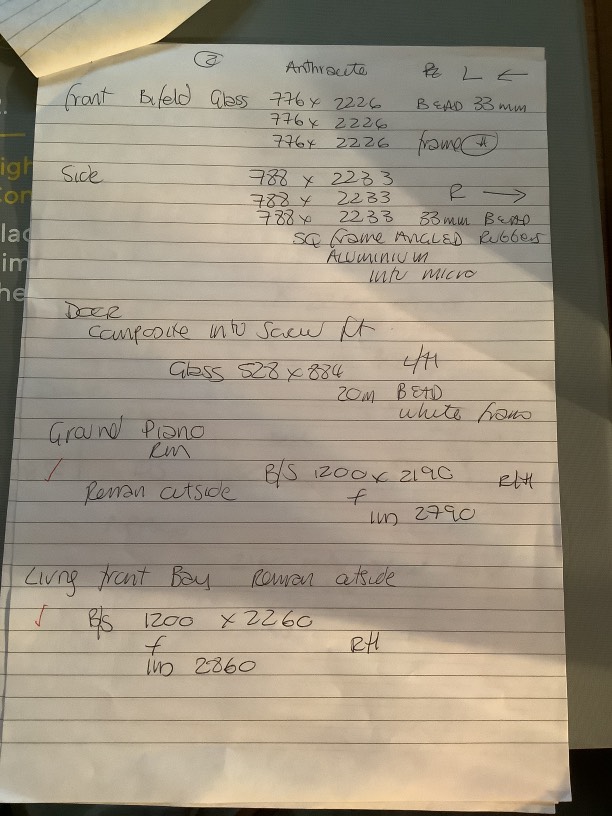 2 Anthracite L ←
front Bifold Glass 776 x 2226 BEAD 33 mm
776 x 2226
776 x 2226 frame
Side 788 x 2233
788 x 2233 R →
788 x 2233 33mm BEAD
SQ frame ANGLED Rubbers
ALUMINIUM
intu micro
DOOR
Composite intu Screw fit
Glass 528 x 884 L/H
20m BEAD
white frame
Ground Piano
RM
B/S 1200 x 2190 R/H
Roman outside f
lin 2790
Living front Bay Roman outside
B/S 1200 x 2260
f RH
lin 2860
igh
con
lac
im
he